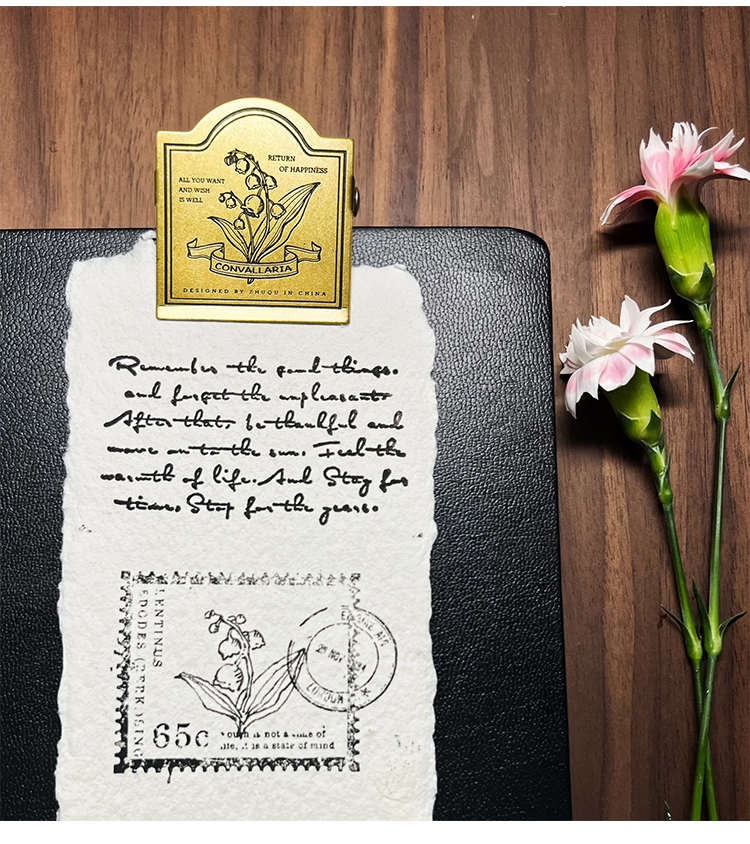 RETURN
OF HAPPINESS
ALL YOU WANT
AND WISH
IS WELL
CONVALLARIA
DESIGNED BY ZHUQU IN CHINA
Remember the good things.
and forget the unpleasant.
After that, be thankful and
move on to the sun. Feel the
warmth of life. And Stay for
time. Stop for the years.
LENTINUS
EDODES
65c
Youth is not a time of
life, it is a state of mind
LONDON